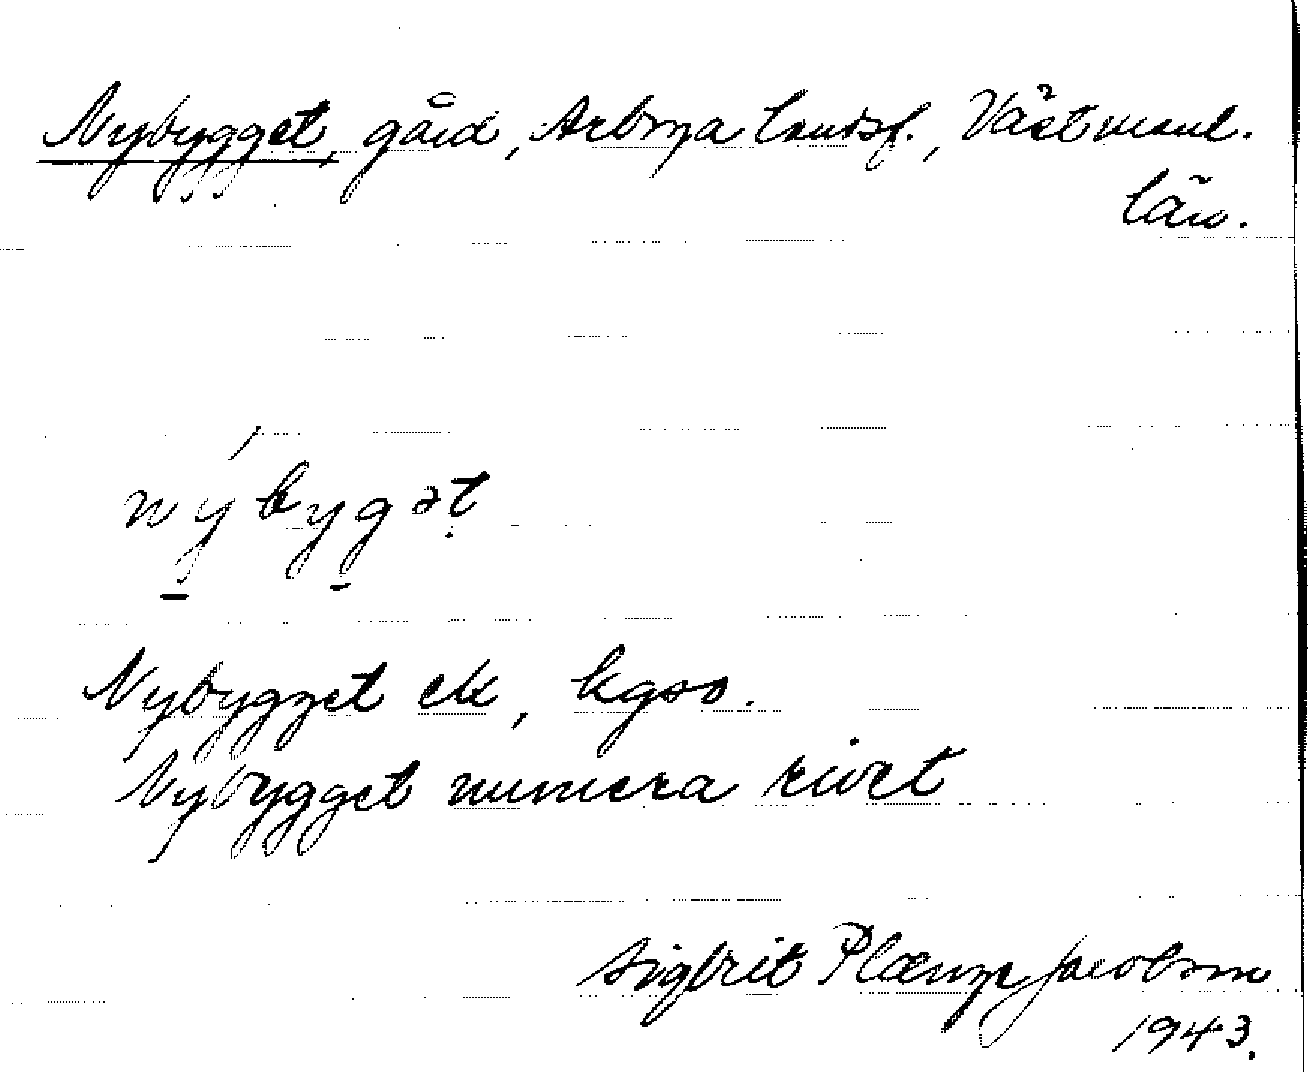 Nybygget, gård, Arboga landsf., Västmanl.
län.
nybygət
Nybygget ek, kgso.
Nybygget numera rivet
Sigbrit Plænge Jacobson
1943.